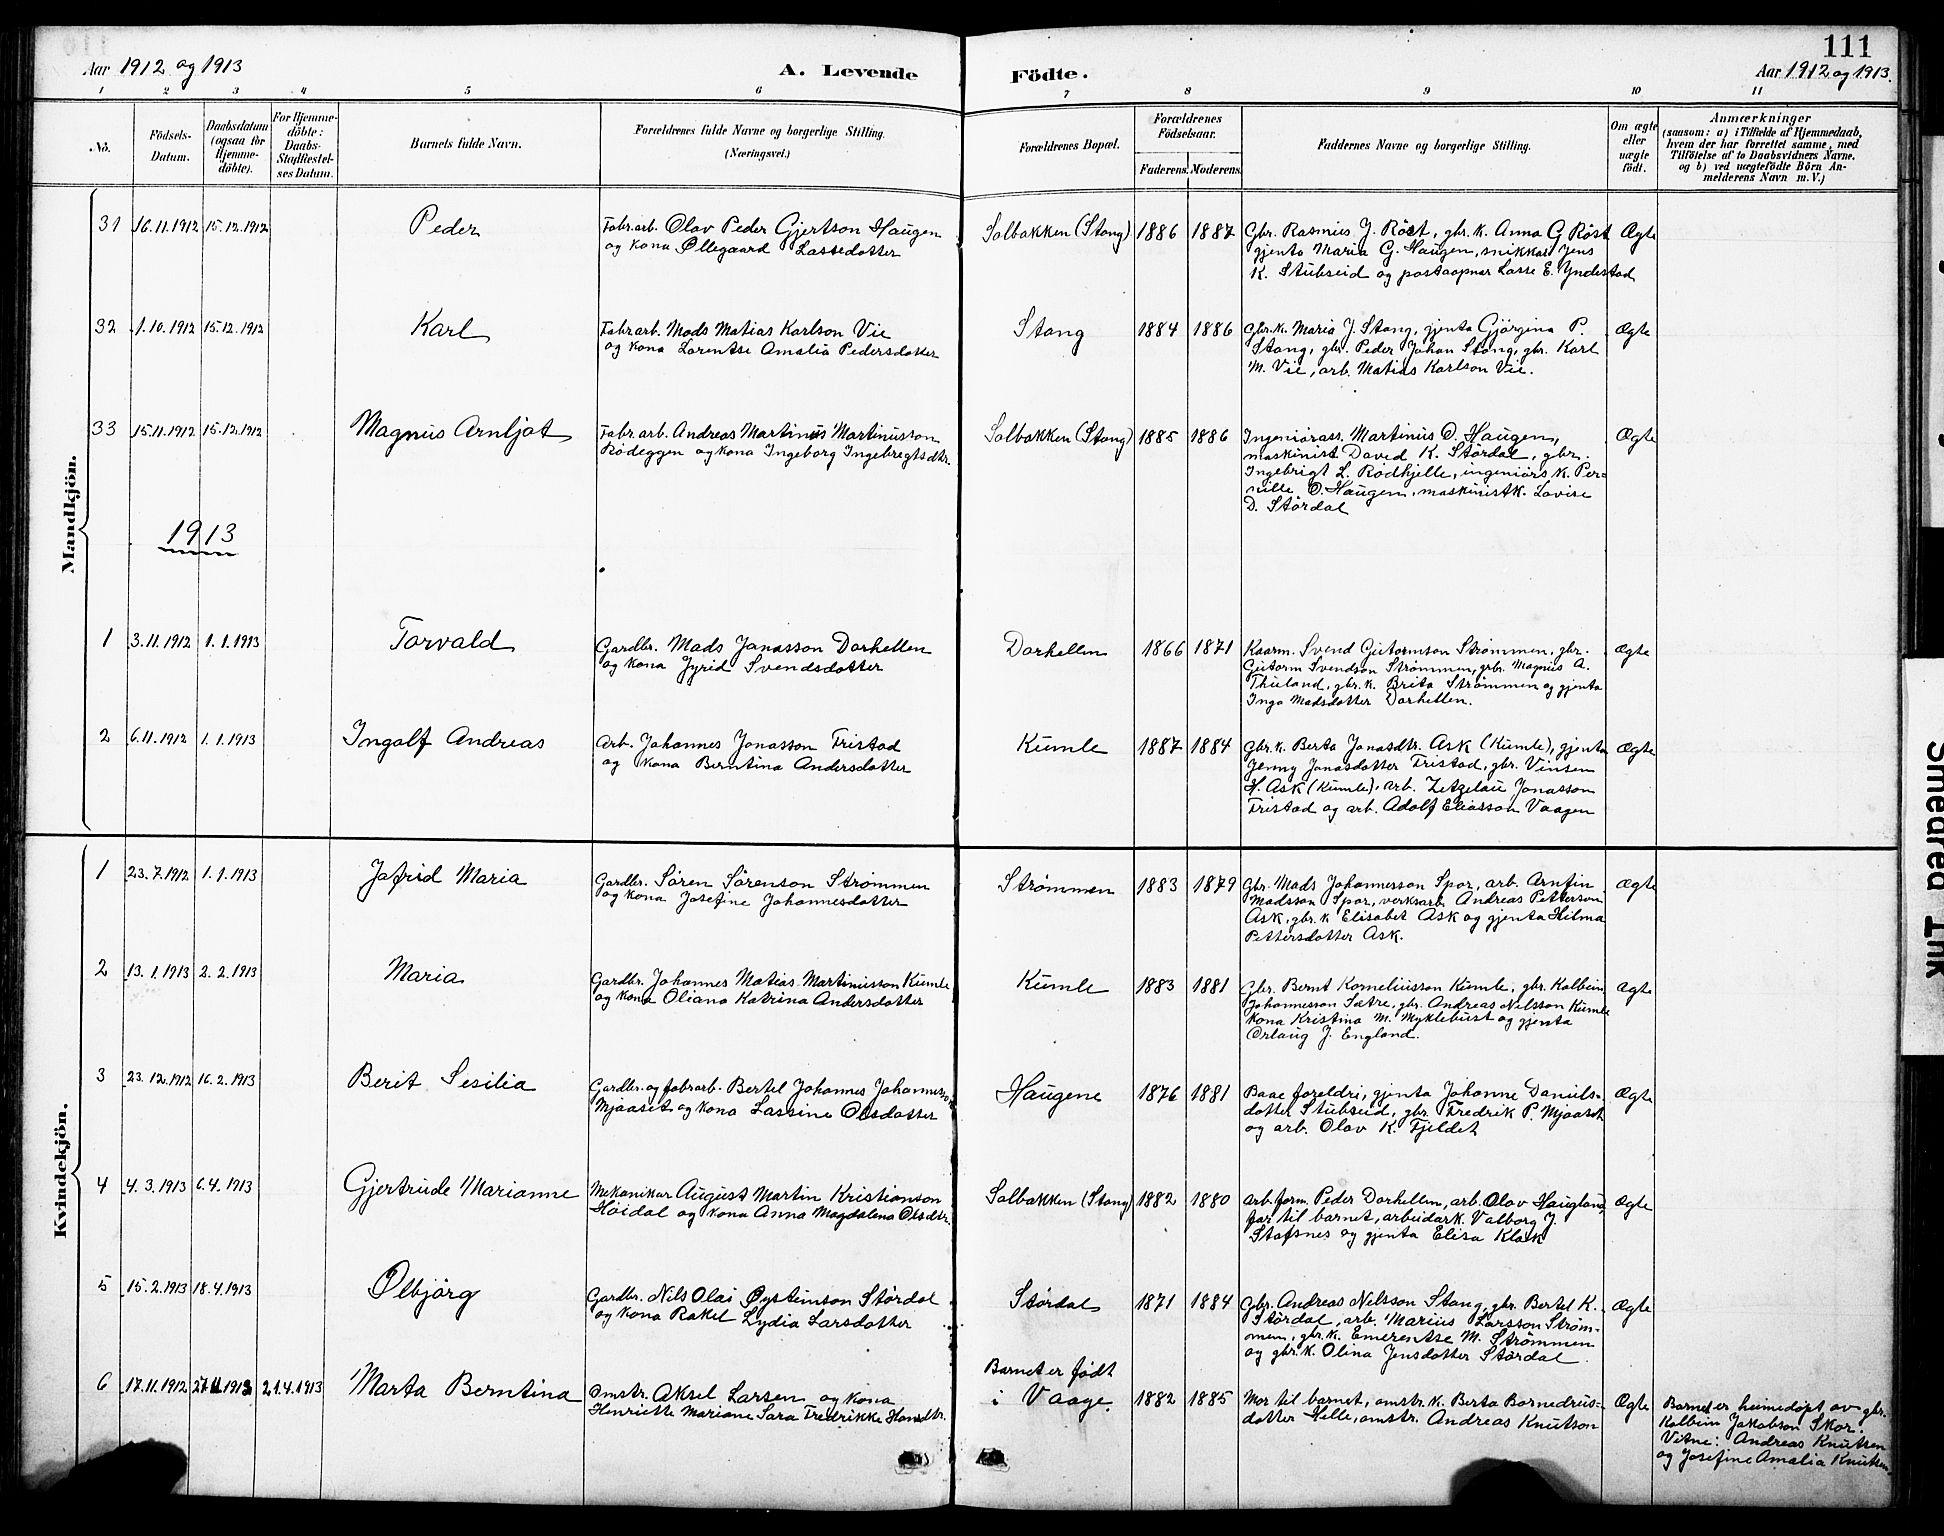 111
Aar 1912 og 1913
A. Levende
Födte.
Aar 1912 og 1913.
1 2 3 4 5 6 7 8 9 10 11
No.
Födsels-
Datum.
Daabsdatum
(ogsaa for
Hjemme-
döbte).
For Hjemme-
döbte:
Daabs-
Stadfæstel-
ses Datum.
Barnets fulde Navn.
Forældrenes fulde Navne og borgerlige Stilling.
(Næringsvei.)
Forældrenes Bopæl.
Forældrenes
Födselsaar.
Faderens. Moderens.
Faddernes Navne og borgerlige Stilling.
Om ægte
eller
uægte
födt.
Anmærkninger
(saasom: a) i Tilfælde af Hjemmedaab,
hvem der har forrettet samme, med
Tilföielse af to Daabsvidners Navne,
og b) ved uægtefödte Börn An-
melderens Navn m. V.)
Mandkjön.
31 16.11.1912 15.12.1912 Peder
Fabr.arb. Olav Peder Gjertson Haugen
og kona Øllegaard Lassedotter
Solbakken (Stang) 1886 1887
Gbr. Rasmus J. Röst, gbr. k. Anna G Röst
gjenta Maria G. Haugen, snikkar Jens
K. Stubseid og postaapnar Lasse E. Yndestad
Ægte
32 1.10.1912 15.12.1912 Karl
Fabr.arb. Mads Matias Karlson Vie
og kona Lorentse Amalia Pedersdotter
Stang 1884 1886
Gbr.k. Maria J. Stang, gjenta Gjörgina P.
Stang, gbr. Peder Johan Stang, gbr. Karl
M. Vie, arb. Matias Karlson Vie.
Ægte
33 15.11.1912 15.12.1912 Magnus Arnljot
Fabr.arb. Andreas Martinus Martinusson
Rödeggen og kona Ingeborg Ingebregtsdtr.
Solbakken (Stang) 1885 1886
Ingeniörass. Martinus O. Haugen,
maskinist David K. Stördal, gbr.
Ingebrigt L. Rödhjelle, ingeniörs k. Per-
nille O. Haugen, maskinistk. Lovise
D. Stördal
Ægte
1913
1 3.11.1912 1.1.1913 Torvald
Gardbr. Mads Jonasson Dorhellen
og kona Jyrid Svendsdotter
Dorhellen 1866 1871
Kaarm. Svend Gutormson Strømmen, gbr.
Gutorm Svendson Strømmen, gbr. Magnus A.
Thuland, gbr. k. Brita Strømmen og gjenta
Inga Madsdotter Dorhellen.
Ægte
2 6.11.1912 1.1.1913 Ingolf Andreas
Arb. Johannes Jonasson Fristad
og kona Berntina Andersdotter
Kumle 1887 1884
Gbr.k. Berta Jonasdtr. Ask (Kumle), gjenta
Jenny Jonasdotter Fristad, gbr. Vinsen
H. Ask (Kumle), arb. Zetzelau Jonasson
Fristad og arb. Adolf Eliasson Vaagen
Ægte
Kvindekjön.
1 23.7.1912 1.1.1913 Jofrid Maria
Gardbr. Sören Sörenson Strømmen
og kona Josefine Johannesdotter
Strømmen 1883 1879
Gbr. Mads Johannesson Spor, arb. Arnfin
Madsson Spor, verksarb. Andreas Petterson
Ask, gbr. k Elisabet Ask og gjenta Hilma
Pettersdotter Ask.
Ægte
2 13.1.1913 2.2.1913 Maria
Gardbr. Johannes Matias Martinusson Kumle
og kona Oliana Katrina Andersdotter
Kumle 1883 1881
Gbr. Bernt Korneliusson Kumle, gbr. Kolbein
Johannesson Sætre, gbr. Andreas Nilsson Kumle
kona Kristina M. Myklebust og gjenta
Orlaug J. England.
Ægte
3 23.12.1912 16.2.1913 Berit Sesilia
Gardbr. og fabr.arb. Bertel Johannes Johannesson
Mjaaset og kona Lassine Olsdotter
Haugene 1876 1881
Baae foreldri, gjenta Johanne Daniels-
dotter Stubseid, gbr. Fredrik P. Mjaaset
og arb. Olav K. Fjeldet
Ægte
4 4.3.1913 6.4.1913 Gjertrude Marianne
Mekanikar August Martin Kristianson
Höidal og kona Anna Magdalena Olsdtr.
Solbakken (Stang) 1882 1880
Arb.form. Peder Dorhellen, arb. Olav Haugland,
far til barnet, arbeidark. Valborg J.
Stafsnes og gjenta Elisa Klak
Ægte
5 15.2.1913 18.4.1913 Olbjörg
Gardbr. Nils Olai Øysteinson Stördal
og kona Rakel Lydia Larsdotter
Stördal 1871 1884
Gbr. Andreas Nelsson Stang, gbr. Bertel K.
Stördal, arb. Marius Larsson Ström-
men, gbr. k. Emerentse M. Strömmen
og gbr. k. Olina Jensdotter Stördal.
Ægte
6 17.11.1912 27.11.1912 21.4.1913 Marta Berntina
Omstr. Aksel Larsen og kona
Henriette Mariane Sara Fredrikke Hansdtr.
Barnet er født
i Vaage. 1882 1885
Mor til barnet, omstr. k. Berta Bornedrus-
dotter Hille, omstr. Andreas Knutson
Ægte
Barnet er heimedøpt av gbr.
Kolbein Jakobson Skor.
Vitne: Andreas Knutsen
og Josefine Amalia Knutsen.
Smeared Ink